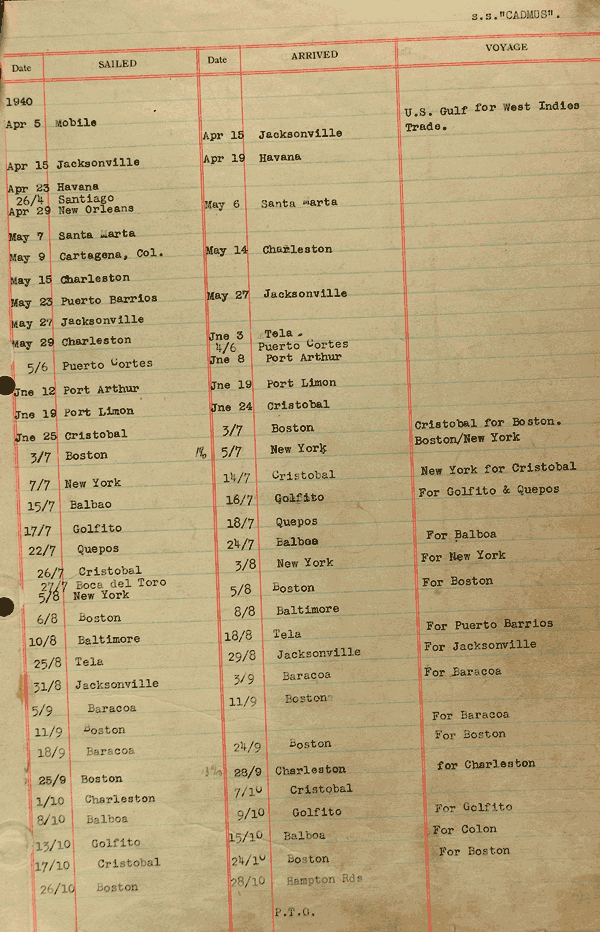 s.s."CADMUS".
Date SAILED Date ARRIVED VOYAGE
1940
U.S. Gulf for West Indies
Apr 5 Mobile
Trade.
Apr 15 Jacksonville
Apr 15 Jacksonville Apr 19 Havana
Apr 23 Havana
26/4 Santiago
Apr 29 New Orleans May 6 Santa Marta
May 7 Santa Marta
May 9 Cartagena, Col. May 14 Charleston
May 15 Charleston
May 23 Puerto Barrios May 27 Jacksonville
May 27 Jacksonville
May 29 Charleston Jne 3 Tela.
4/6 Puerto Cortes
5/6 Puerto Cortes Jne 8 Port Arthur
Jne 12 Port Arthur Jne 19 Port Limon
Jne 19 Port Limon Jne 24 Cristobal
Jne 25 Cristobal 3/7 Boston Cristobal for Boston.
3/7 Boston 5/7 New York Boston/New York
7/7 New York 14/7 Cristobal New York for Cristobal
15/7 Balbao 16/7 Golfito For Golfito & Quepos
17/7 Golfito 18/7 Quepos
22/7 Quepos 24/7 Balboa For Balboa
26/7 Cristobal 3/8 New York For New York
27/7 Boca del Toro
5/8 New York 5/8 Boston For Boston
6/8 Boston 8/8 Baltimore
10/8 Baltimore 18/8 Tela For Puerto Barrios
25/8 Tela 29/8 Jacksonville For Jacksonville
31/8 Jacksonville 3/9 Baracoa For Baracoa
5/9 Baracoa 11/9 Boston
11/9 Boston For Baracoa
18/9 Baracoa 24/9 Boston For Boston
25/9 Boston 28/9 Charleston for Charleston
1/10 Charleston 7/10 Cristobal
8/10 Balboa 9/10 Golfito For Golfito
13/10 Golfito 15/10 Balboa For Colon
17/10 Cristobal 24/10 Boston For Boston
26/10 Boston 28/10 Hampton Rds
P.T.O.